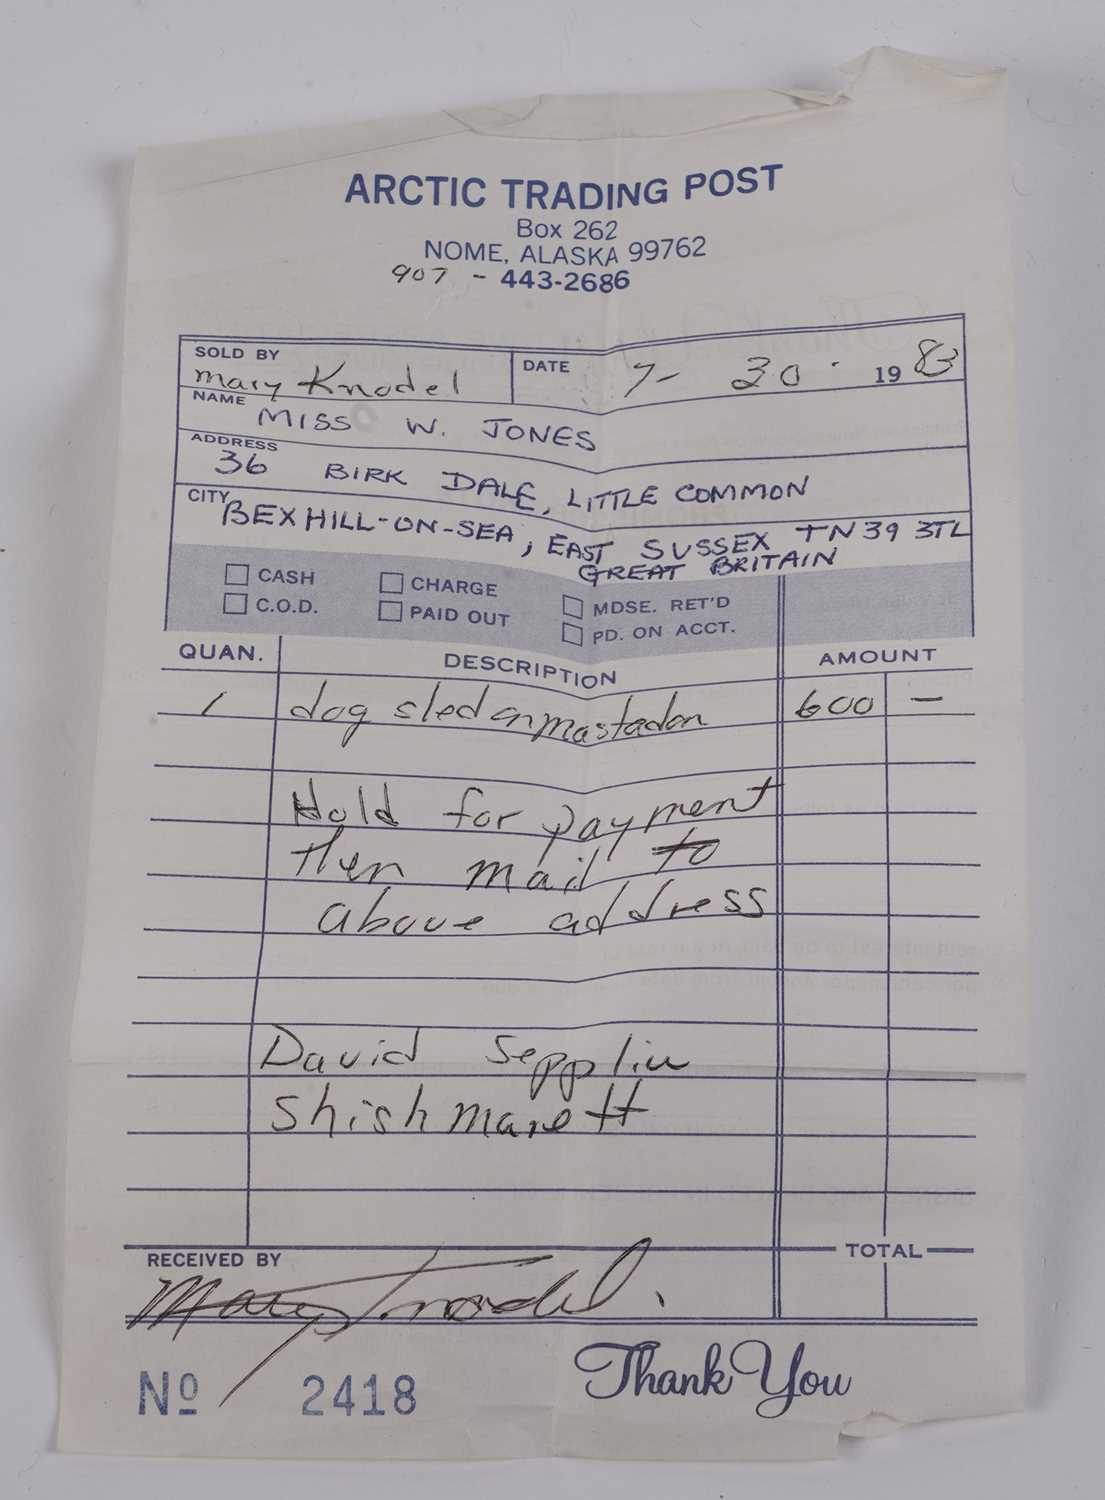 ARCTIC TRADING POST
Box 262
NOME, ALASKA 99762
907 - 443-2686
SOLD BY Mary Knodel DATE 7- 30 - 1983
NAME MISS W. JONES
ADDRESS 36 BIRK DALE, LITTLE COMMON
CITY BEXHILL-ON-SEA, EAST SUSSEX TN39 3TL
GREAT BRITAIN
CASH CHARGE MDSE. RET'D
C.O.D. PAID OUT PD. ON ACCT.
QUAN. DESCRIPTION AMOUNT
1 dog sled on mastadon 600 —
Hold for payment
then mail to
above address
David Sepplin
Shishmarett
TOTAL
RECEIVED BY
Mary Knodel.
No 2418 Thank You